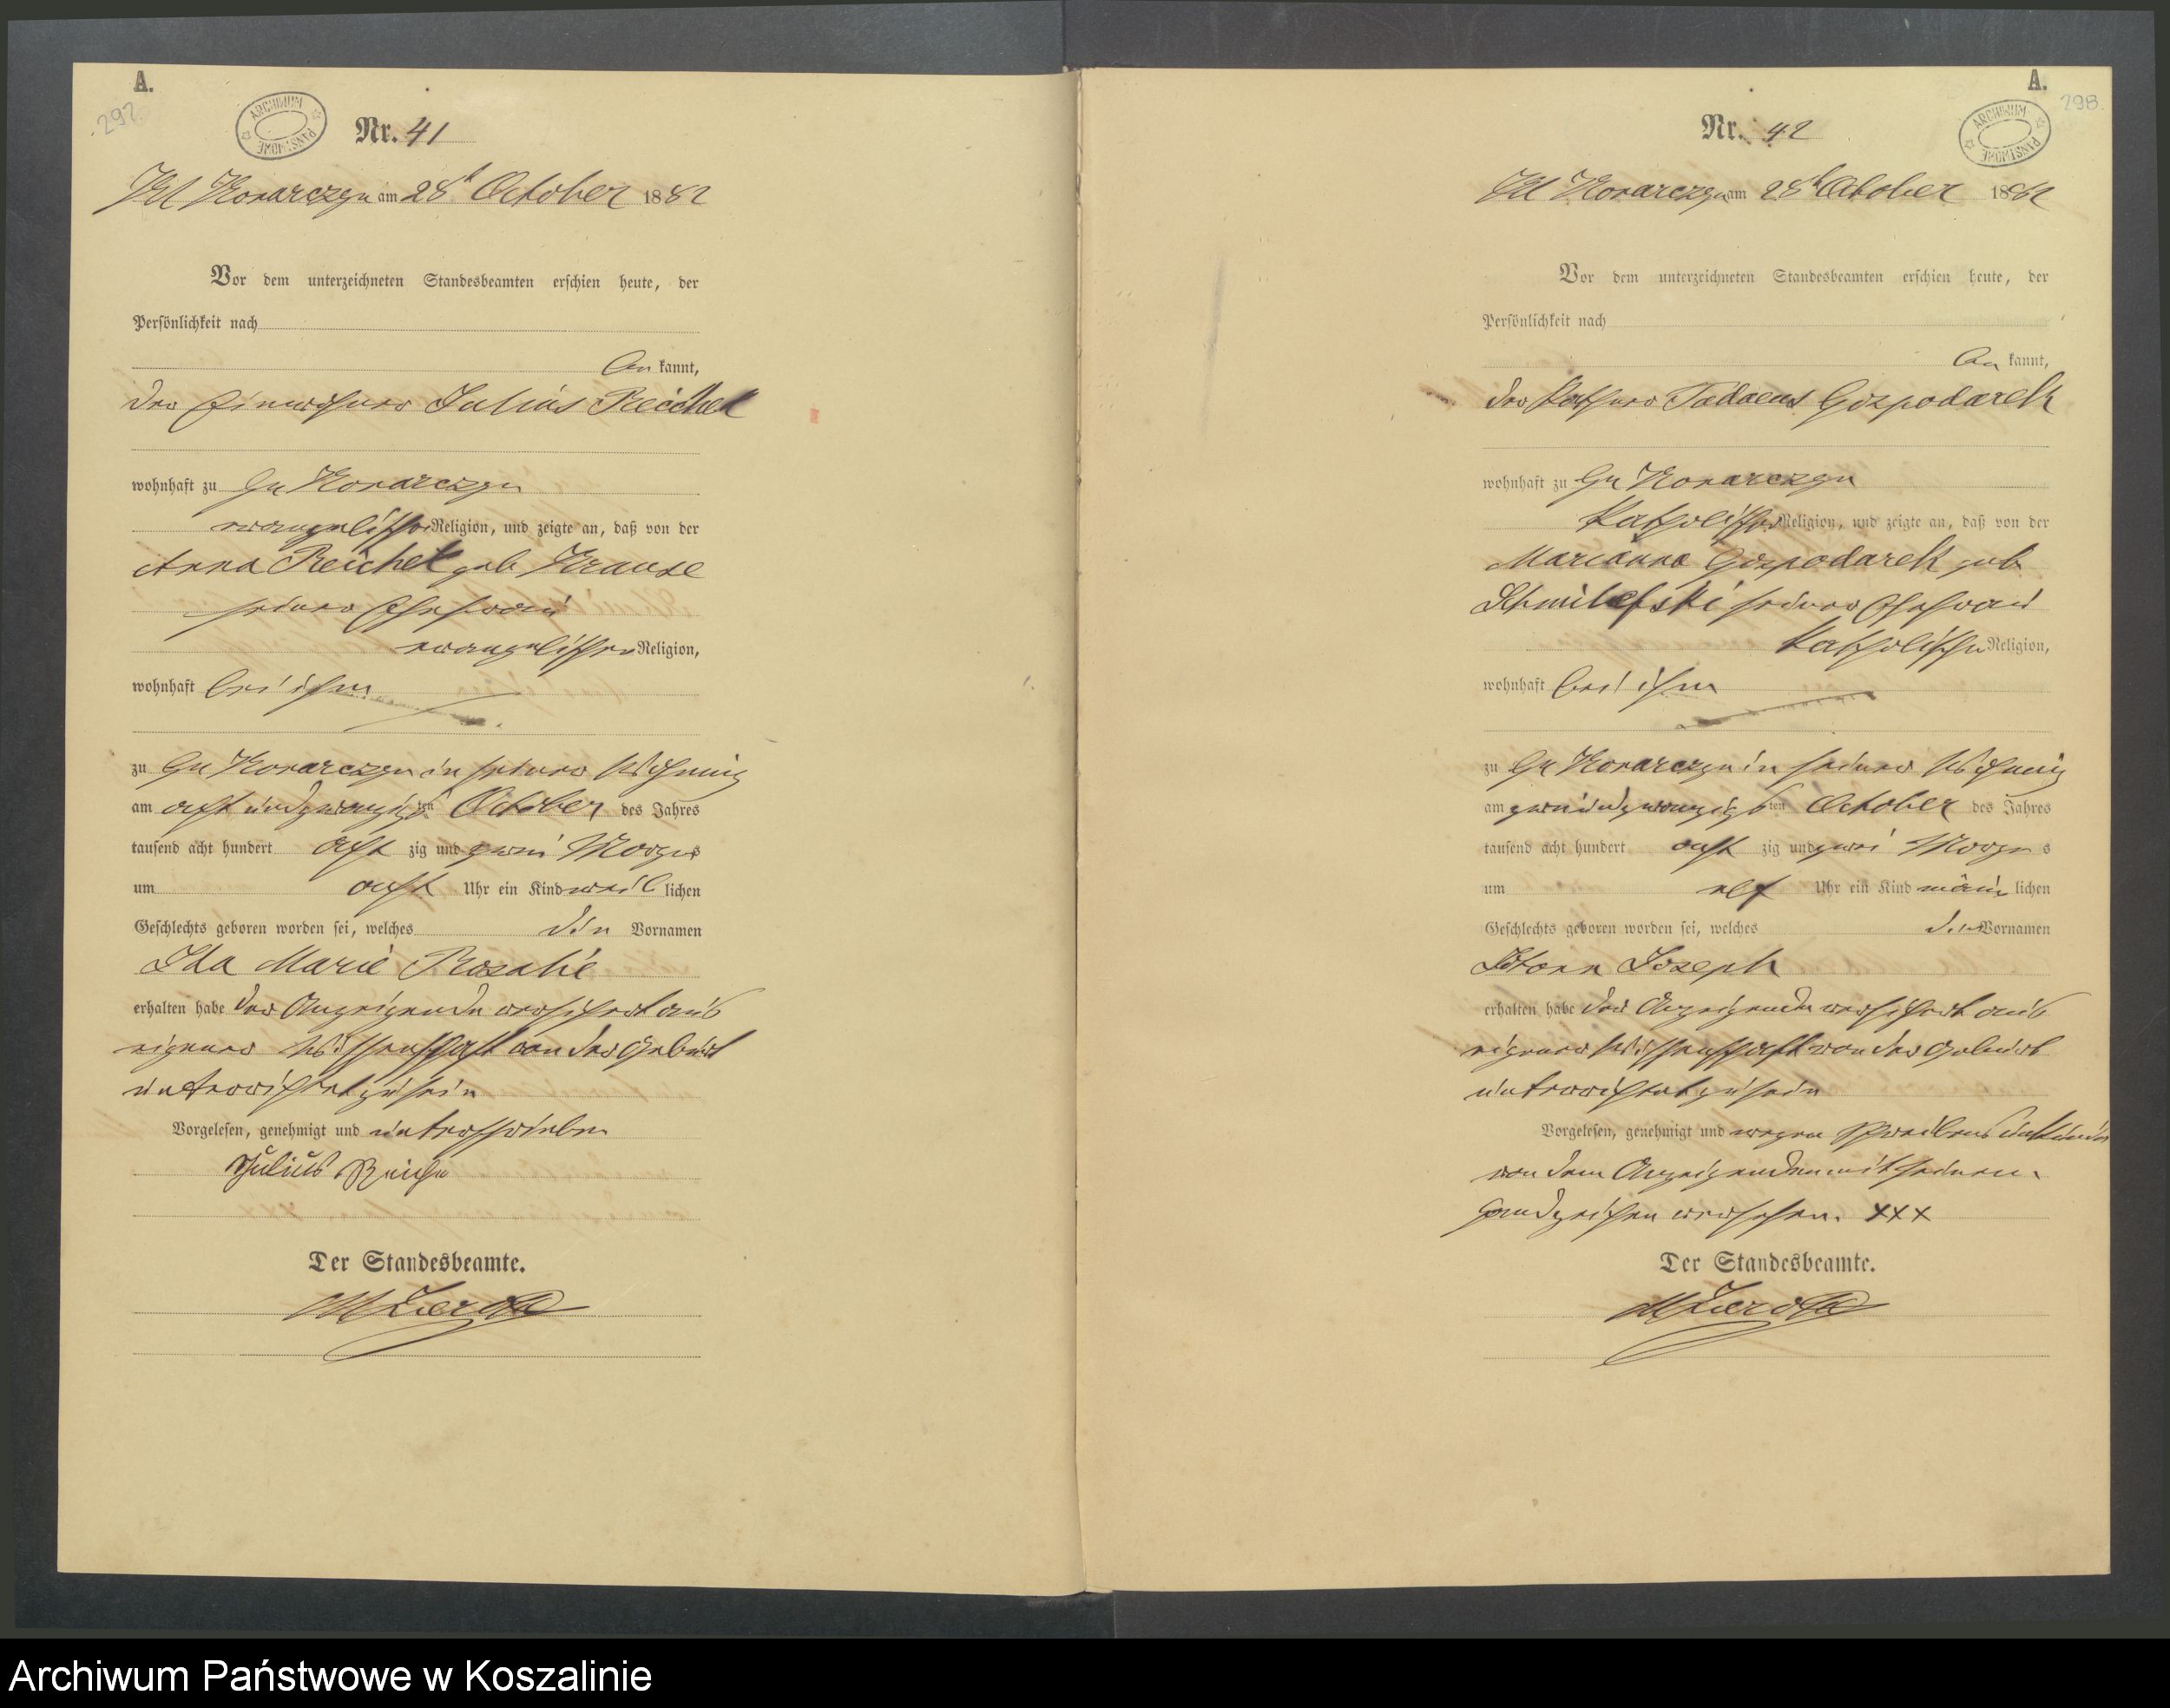 A.
292.
ARCHIWUM PAŃSTWOWE
Nr. 41
Kl Konarczyn am 28t October 1882
Vor dem unterzeichneten Standesbeamten erschien heute, der
Persönlichkeit nach
be kannt,
der Einwohner Julius Reichel
wohnhaft zu Gr Konarczyn
evangelischer Religion, und zeigte an, daß von der
Anna Reichel geb Krause
seiner Ehefrau
evangelischer Religion,
wohnhaft bei ihm
zu Gr Konarczyn in seiner Wohnung
am acht und zwanzigsten October des Jahres
tausend acht hundert acht zig und zwei Morgens
um acht Uhr ein Kind weiblichen
Geschlechts geboren worden sei, welches den Vornamen
Ida Marie Rosalie
erhalten habe der Anzeigende versichert aus
eigener Wissenschaft von der Geburt
unterrichtet zu sein
Vorgelesen, genehmigt und unterschrieben
Julius
Der Standesbeamte.
A.
298.
ARCHIWUM PAŃSTWOWE
Nr. 42
Kl Konarczyn am 28t October 1882
Vor dem unterzeichneten Standesbeamten erschien heute, der
Persönlichkeit nach
be kannt,
der Käthner Tadaeus Gospodarek
wohnhaft zu Gr Konarczyn
katholischer Religion, und zeigte an, daß von der
Marianna Gospodarek geb
seiner Ehefrau
katholischer Religion,
wohnhaft bei ihm
zu Gr Konarczyn in seiner Wohnung
am zwei und zwanzigsten October des Jahres
tausend acht hundert acht zig und zwei Morgens
um elf Uhr ein Kind männlichen
Geschlechts geboren worden sei, welches den Vornamen
Joseph
erhalten habe der Anzeigende versichert aus
eigener Wissenschaft von der Geburt
unterrichtet zu sein
Vorgelesen, genehmigt und wegen Schreibens
von dem Anzeigenden mit seinem
Handzeichen versehen. xxx
Der Standesbeamte.
Archiwum Państwowe w Koszalinie